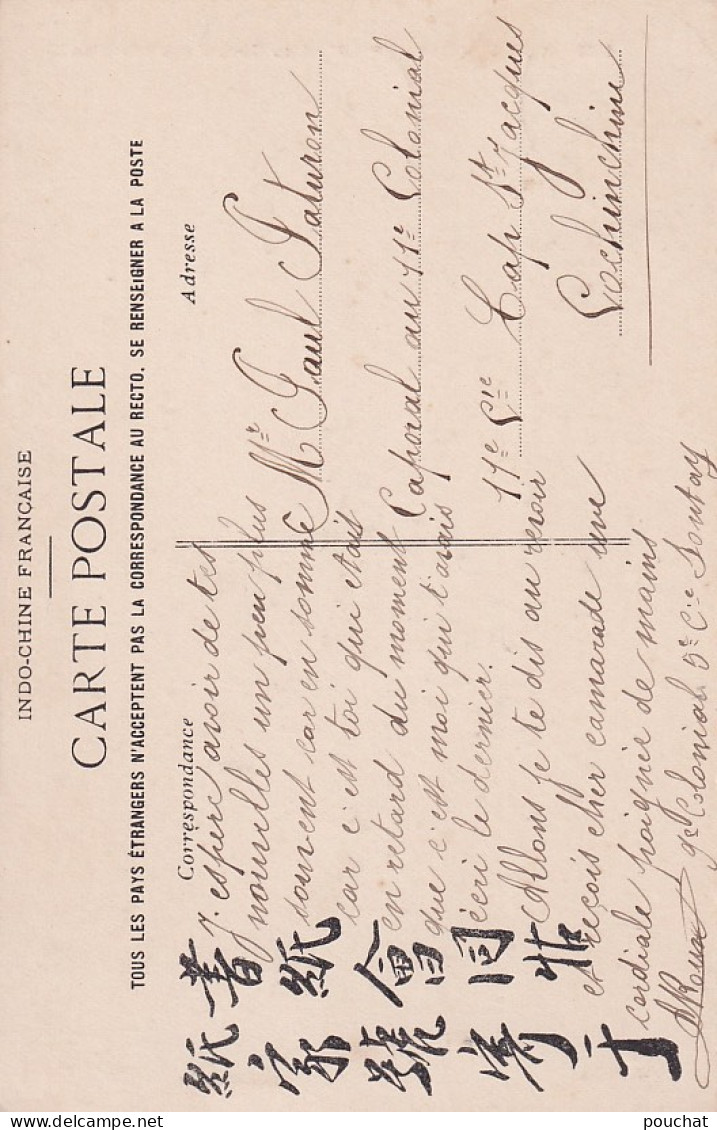 INDO-CHINE FRANÇAISE
CARTE POSTALE
TOUS LES PAYS ÉTRANGERS N'ACCEPTENT PAS LA CORRESPONDANCE AU RECTO. SE RENSEIGNER A LA POSTE
Correspondance
J'espère avoir de tes
nouvelles un peu plus
souvent car en somme
car c'est toi qui étais
en retard du moment
que c'est moi qui t'avais
écri le dernier.
Allons je te dis au revoir
et reçois cher camarade une
cordiale poignée de mains
9e Colonial 5e Cie Sontay
Adresse
Mr Paul Paturon
Caporal au 11e Colonial
11e Cie Cap St Jacques
Cochinchine
紙 書
家 紙
號 會
同
子
pouchat